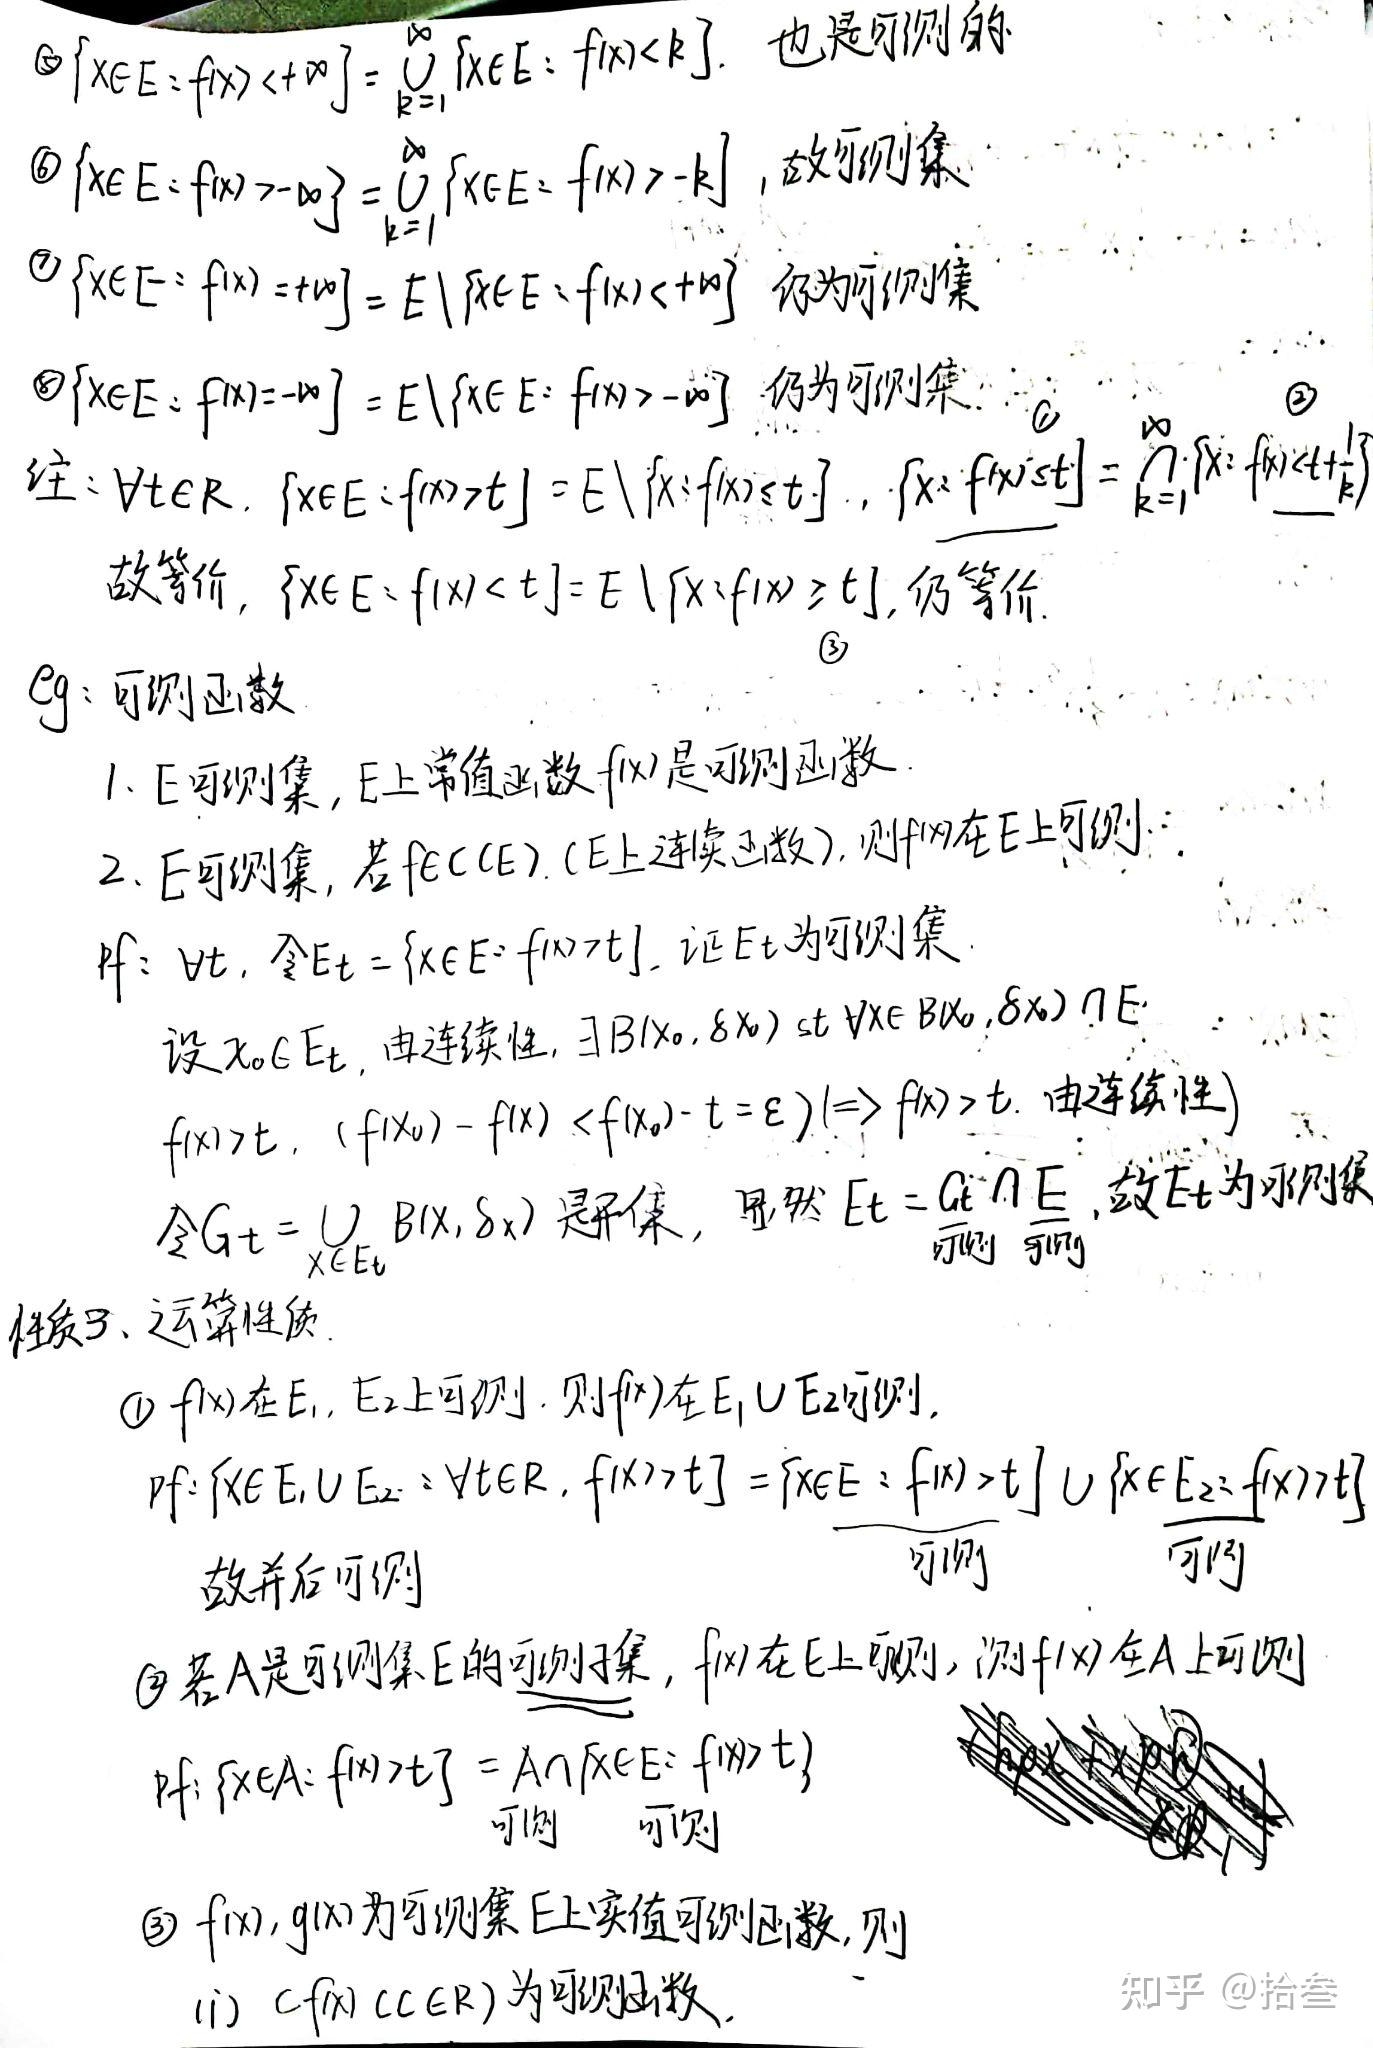 ⑤ {x∈E: f(x)<+∞} = ∪_{k=1}^∞ {x∈E: f(x)<k}. 也是可测的
⑥ {x∈E: f(x)>-∞} = ∪_{k=1}^∞ {x∈E: f(x)>-k}, 故可测集
⑦ {x∈E: f(x)=+∞} = E\{x∈E: f(x)<+∞} 仍为可测集
⑧ {x∈E: f(x)=-∞} = E\{x∈E: f(x)>-∞} 仍为可测集.
① ②
注: ∀t∈R. {x∈E: f(x)>t} = E\{x: f(x)≤t}, {x: f(x)≤t} = ∩_{k=1}^∞ {x: f(x)<t+1/k}
故等价, {x∈E: f(x)<t} = E\{x: f(x)≥t}, 仍等价.
③
eg: 可测函数
1、E可测集, E上常值函数f(x)是可测函数.
2、E可测集, 若f∈C(E). (E上连续函数), 则f(x)在E上可测.
pf: ∀t, 令Et = {x∈E: f(x)>t}. 证Et为可测集.
设x₀∈Et, 由连续性, ∃B(x₀, δx₀) st ∀x∈B(x₀, δx₀)∩E.
f(x)>t, (f(x₀)-f(x)<f(x₀)-t=ε)(=> f(x)>t. 由连续性)
令Gt = ∪_{x∈Et} B(x, δx) 是开集, 显然 Et = Gt∩E, 故Et为可测集
可测 可测
性质3、运算性质.
① f(x)在E₁, E₂上可测. 则f(x)在E₁∪E₂可测.
pf: {x∈E₁∪E₂: ∀t∈R, f(x)>t} = {x∈E: f(x)>t} ∪ {x∈E₂: f(x)>t}
可测 可测
故并后可测
② 若A是可测集E的可测子集, f(x)在E上可测, 则f(x)在A上可测
pf: {x∈A: f(x)>t} = A∩{x∈E: f(x)>t}
可测 可测
③ f(x), g(x)为可测集E上实值可测函数, 则
(i) cf(x) (c∈R) 为可测函数.
知乎 @拾叁